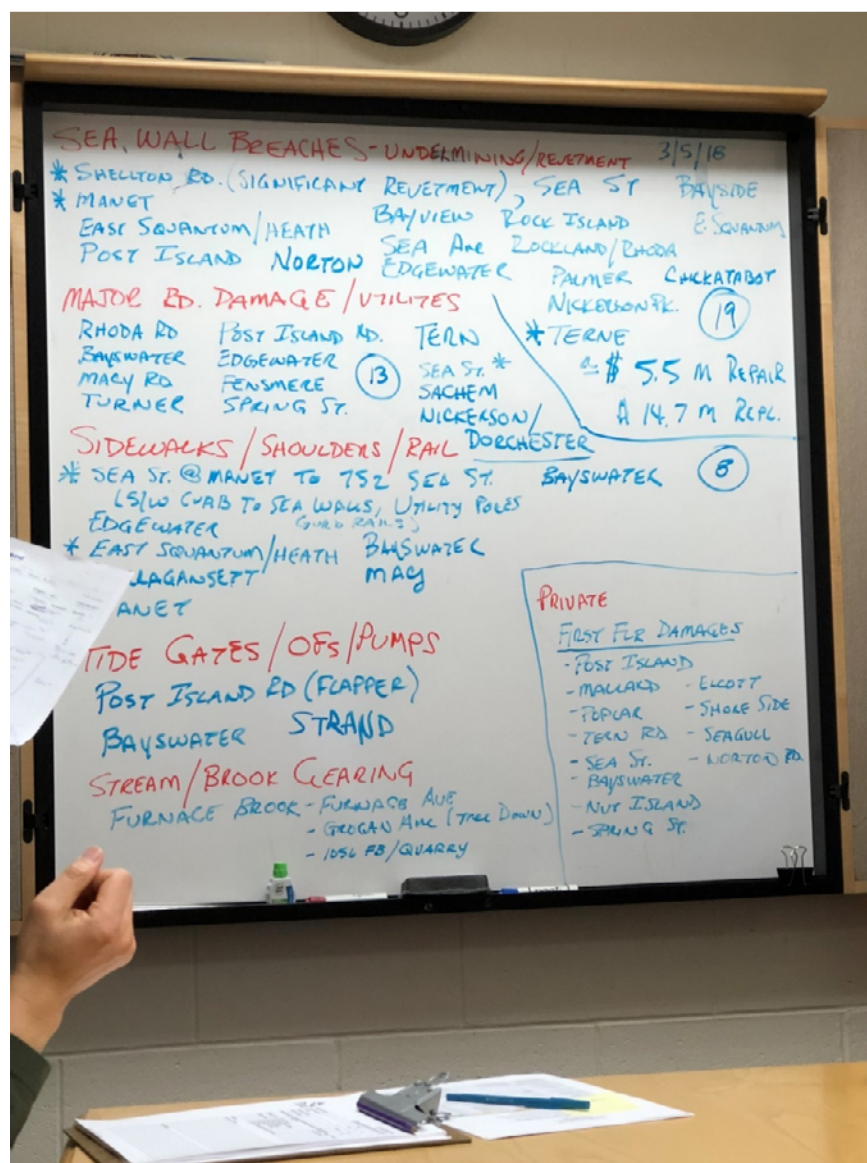 SEA WALL BREACHES - UNDERMINING/REVETMENT 3/5/18
* SHELLTON RD. (SIGNIFICANT REVETMENT), SEA ST BAYSIDE
* MANET BAYVIEW ROCK ISLAND E. SQUANTUM
EAST SQUANTUM/HEATH SEA AVE ROCKLAND/RHODA
POST ISLAND NORTON EDGEWATER PALMER CHICKATABOT
NICKERSON PK. 19
* TERNE
≈ $ 5.5 M REPAIR
14.7 M REPL.
MAJOR RD. DAMAGE/UTILITES
RHODA RD POST ISLAND RD. TERN
BAYSWATER EDGEWATER 13 SEA ST. *
MACY RD FENSMERE SACHEM
TURNER SPRING ST. NICKERSON/
DORCHESTER
SIDEWALKS/SHOULDERS/RAIL
* SEA ST. @ MANET TO 752 SEA ST. BAYSWATER 8
CURB TO SEA WALLS, UTILITY POLES
EDGEWATER
* EAST SQUANTUM/HEATH BAYSWATER
LAGANSETT MACY
ANET
TIDE GATES/OFS/PUMPS
POST ISLAND RD (FLAPPER)
BAYSWATER STRAND
STREAM/BROOK CLEARING
FURNACE BROOK - FURNACE AVE
- GROGAN AVE (TREE DOWN)
- 1056 FB/QUARRY
PRIVATE
FIRST FLR DAMAGES
- POST ISLAND
- MALLARD - ELCOTT
- POPLAR - SHORE SIDE
- TERN RD - SEAGULL
- SEA ST. - NORTON RD.
- BAYSWATER
- NUT ISLAND
- SPRING ST.